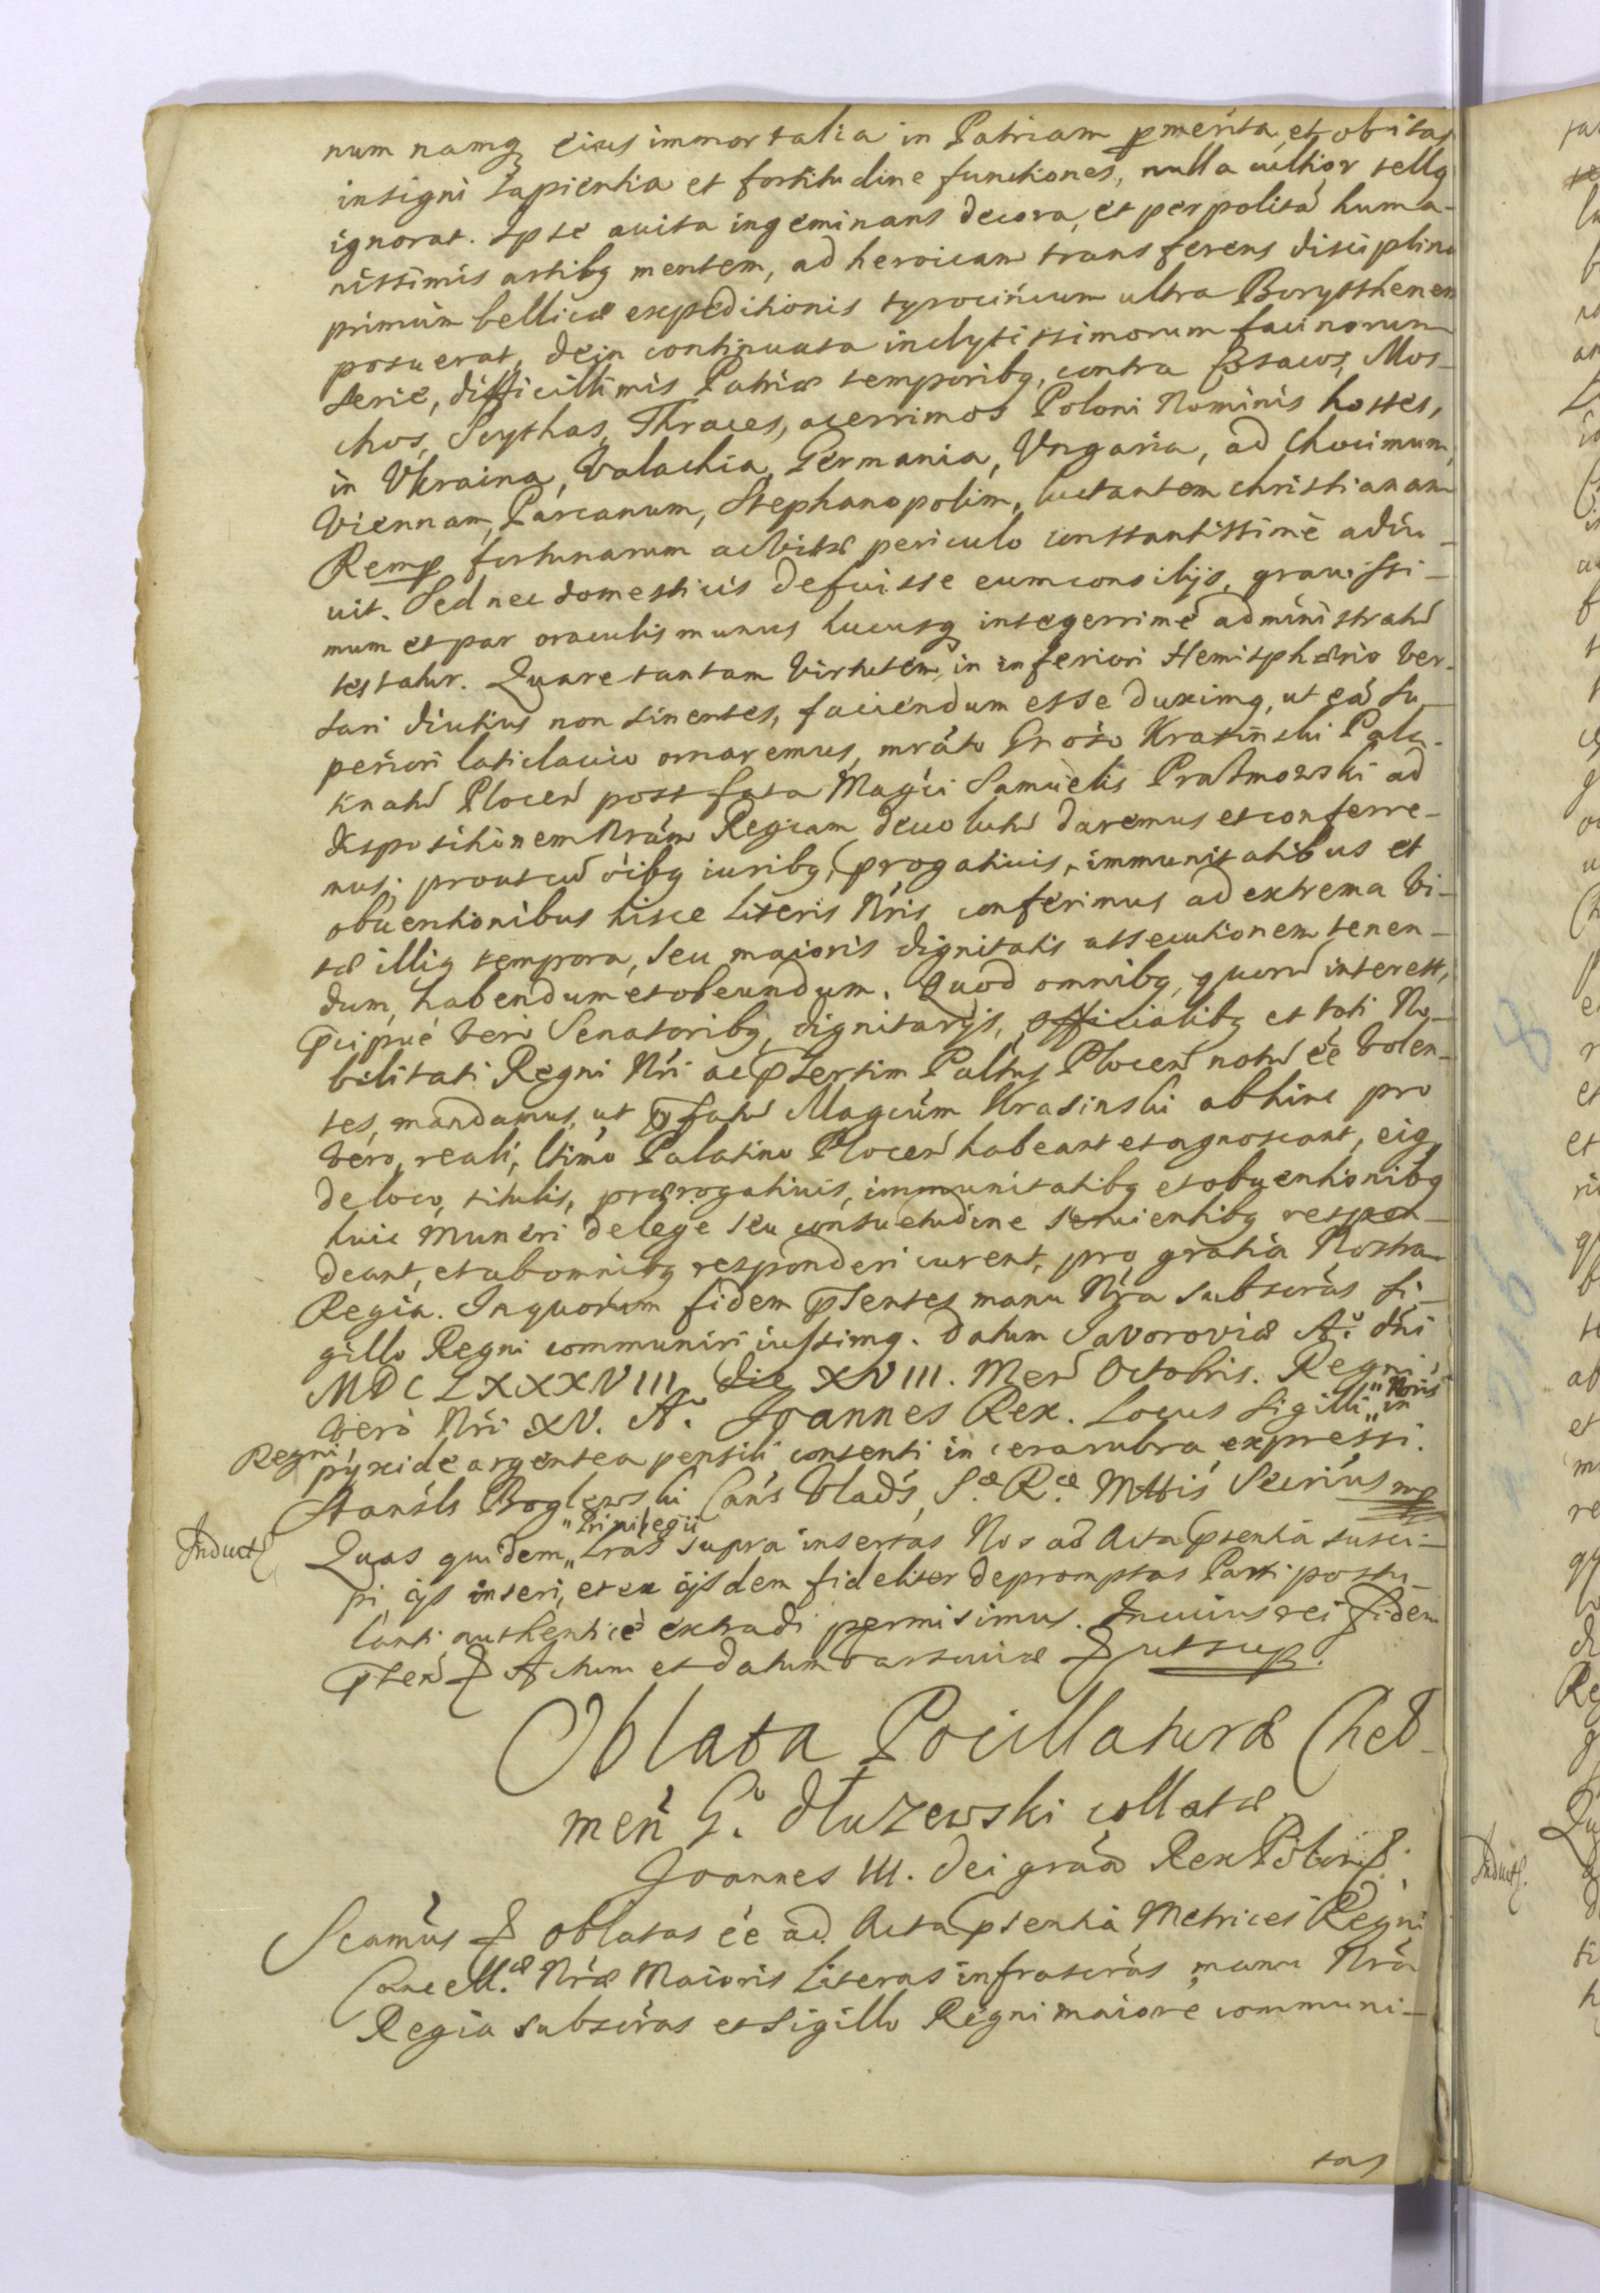 num namq eius immortalia in Patriam pmerita, et obitas
insigni sapientia et fortitudine functiones, nulla cultior tellq
ignorat. Ipse avita ingeminans decora, et perpolitá huma-
nissimis artibq mentem, ad heroicam transferens disciplina
primùm bellicæ expeditionis tyrocinium ultra Borysthenem
posuerat, dein continuata inclytissimorum facinorum
serie, difficillimis Patriæ temporibq, contra Cosacos, Mos-
chos, Scythas, Thraces, acerrimos Poloni Nominis hostes,
in Vkraina, Valachia, Germania, Vngaria, ad Chocimum,
Viennam, Parcanum, Stephanopolim, luctantem christianam
Remp fortunarum ac vitæ periculo constantissimè adiu-
vit. Sed nec domesticis defuisse eum consilijs, gravissi-
mum et par oraculis munus hucusq integerrimè administratu
testatur. Quare tantam Virtutem, in inferiori Hemisphærio ver-
sari diutius non sinentes, faciendum esse duximq, ut eá su-
periori laticlavio ornaremus, mráto Gnoso Krasinski Pala-
tinatu Plocen post fata Magci Samuelis Prażmowski ad
dispositionem Nrám Regiam devolutu daremus et conferre-
mus; prout cu óibq iuribq, progativis, immunitatibus et
obventionibus hisce literis Nris conferimus ad extrema vi-
tæ illiq tempora, seu maioris dignitatis assecutionem tenen-
dum, habendum et obeundum. Quod omnibq, quoru interest,
pcipuè verò Senatoribq, dignitarijs, officialibq et toti No-
bilitati Regni Nri ac psertim Paltus Plocen notu eé volen-
tes, mandamus, ut pfatu Magcum Krasinski abhinc pro
vero, reali, ltimo Palatino Plocen habeant et agnoscant, eiq
de loco, titulis, prærogativis, immunitatibq et obventionibq
huic Muneri de lege seu consuetudine servientibq respon-
deant, et ab omnibq responderi curent, pro gratia Nostra
Regia. In quorum fidem psentes manu Nra subscras si-
gillo Regni communiri iussimq. Datum Javoroviæ Ao. dni
MDCLXXXVIII die XVIII. Men Octobris. Regni
verò Nri XV. Ao. Joannes Rex. Locus Sigilli "Noris" in
Regni pyxide argentea pensili contenti in cera rubra expressi.
Stansls Boglewski Cans Vlads, Sæ. Ræ. Mttis Secrius mp
Inductf Quas quidem "Privilegii" Lras supra insertas Nos ad Acta psentia susci-
pi, ijs inseri, et ex ijsdem fideliter depromptas Parti postu-
lanti authenticè extradi permisimus. In cuius rei fidem
psen & Actum et datum Varsaviæ & ut sup.
Oblata Pocillaturæ Chel-
men Go. dłużewski collatæ
Joannes III. Dei gráa Rex Polon &.
Scamus & oblatas eé ad Acta psentia Metrices Regni
Cancellæ. Nræ Maioris Literas infrascras manu Nra
Regia subscras et Sigillo Regni maiore communi-
tas
Inductf.